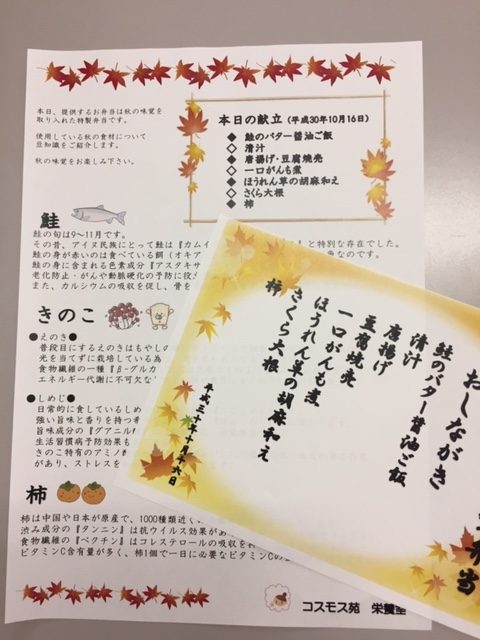 本日、提供するお弁当は秋の味覚を
取り入れた特製弁当です。
使用している秋の食材について
豆知識をご紹介します。
秋の味覚をお楽しみ下さい。
本日の献立（平成30年10月16日）
◆ 鮭のバター醤油ご飯
◇ 清汁
◆ 唐揚げ・豆腐焼売
◇ 一口がんも煮
◆ ほうれん草の胡麻和え
◇ さくら大根
◆ 柿
鮭
鮭の旬は9～11月です。
その昔、アイヌ民族にとって鮭は『カムイ
』と特別な存在でした。
鮭の身が赤いのは食べている餌（オキア
魚なのです。
鮭の身に含まれる色素成分『アスタキサ
老化防止・がんや動脈硬化の予防に役
また、カルシウムの吸収を促し、骨を
きのこ
●えのき●
普段目にするえのきはもやしの
光を当てずに栽培している為
食物繊維の一種『β-グルカ
エネルギー代謝に不可欠な
●しめじ●
日常的に食しているしめ
強い旨味と香りを持つ希
旨味成分の『グアニル
生活習慣病予防効果も
きのこ特有のアミノ
があり、ストレスを
柿
柿は中国や日本が原産で、1000種類近く
渋み成分の『タンニン』は抗ウイルス効果があ
食物繊維の『ペクチン』はコレステロールの吸収を
ビタミンC含有量が多く、柿1個で一日に必要なビタミンCの
コスモス苑 栄養室
弁当
おしながき
鮭のバター醤油ご飯
清汁
唐揚げ
豆腐焼売
一口がんも煮
ほうれん草の胡麻和え
さくら大根
柿
平成三十年十月十六日